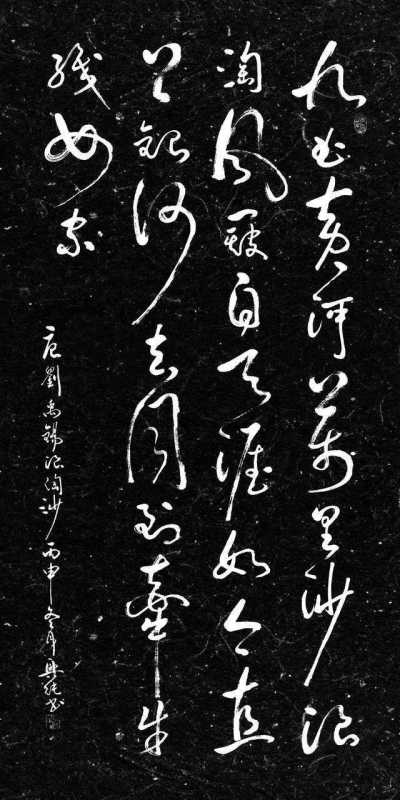 九曲黄河萬里沙浪
淘风簸自天涯如今直
上銀河去同到牽牛
織女家
唐劉禹錫浪淘沙 丙申冬月